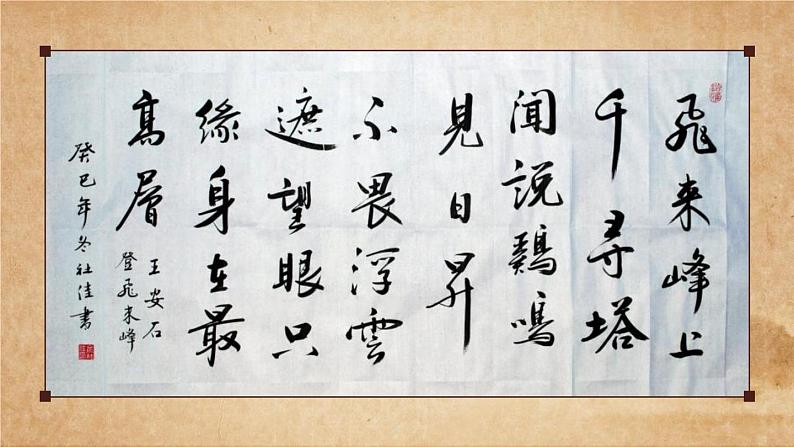 飛来峰上
千尋塔
聞説鷄鳴
見日昇
不畏浮雲
遮望眼只
緣身在最
高層
王安石
登飛来峰
癸巳年冬社佳書